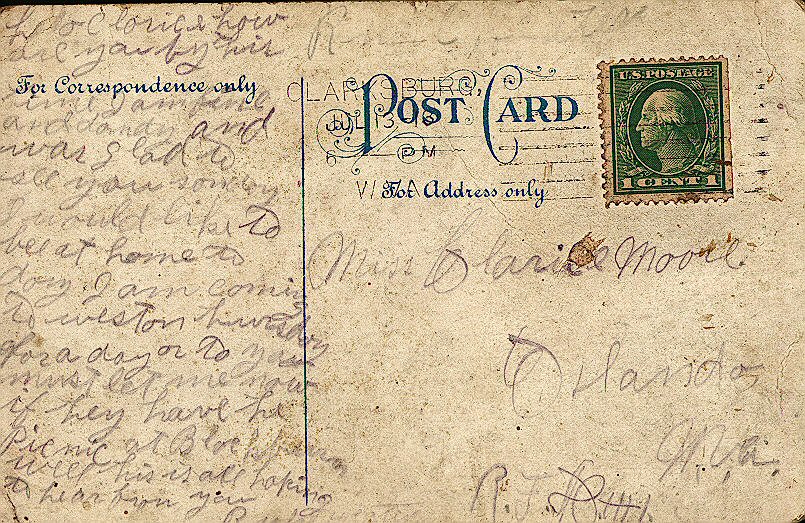 Clarice how
are you by this
For Correspondence only
time I am fine
and dandy and
was glad to
see you
I would like to
bee at home to
day I am coming
to weston thursday
for a day or to you
must let me now
if they have the
Picnic at
well this is all hoping
to hear from you
CLARKSBURG,
JUL 3
PM
W.VA.
POST CARD
For Address only
U.S. POSTAGE
1 CENT 1
Miss Clarice Moore
Orlando
W.Va.